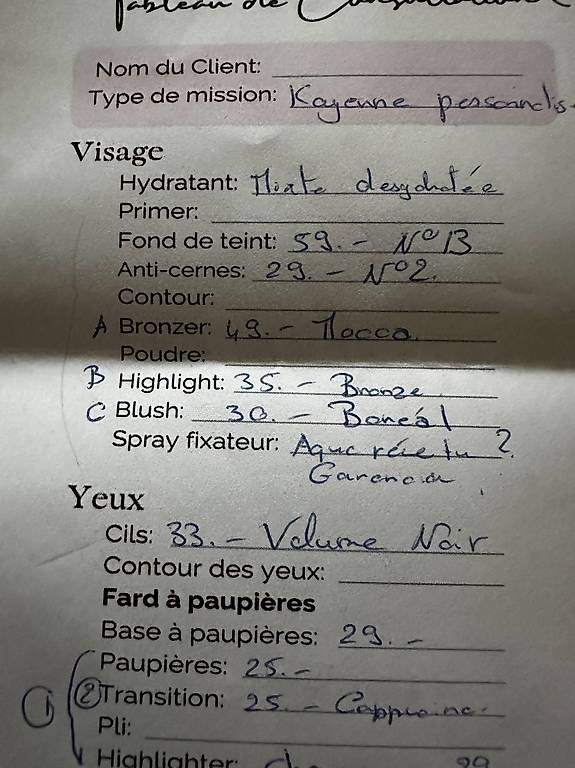 Tableau de
Nom du Client:
Type de mission: Kayenne
Visage
Hydratant: Mixte desydratée
Primer:
Fond de teint: 59.- N°13
Anti-cernes: 29.- N°2.
Contour:
A Bronzer: 49.- Mocca
Poudre:
B Highlight: 35.- Bronze
C Blush: 30.- Boréal
Spray fixateur: ?
Yeux
Cils: 33.- Volume Noir
Contour des yeux:
Fard à paupières
Base à paupières: 29.-
Paupières: 25.-
1 2 Transition: 25.-
Pli:
Highlighter: 29